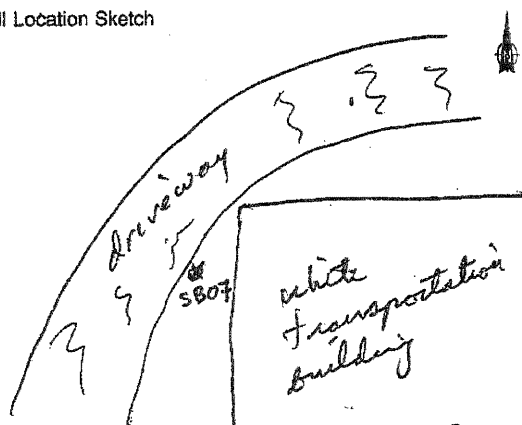 ll Location Sketch
driveway
SB07
white
transportation
building